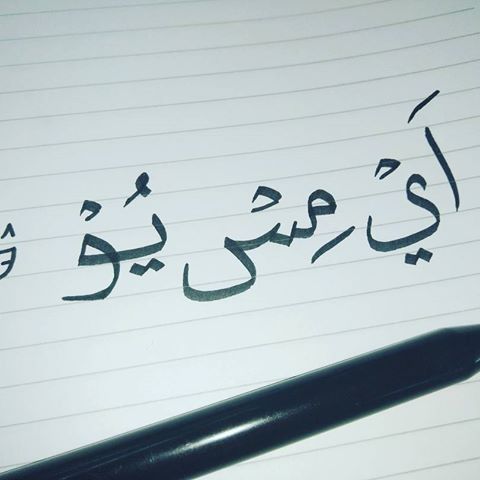 أَيْ مِسْ يُوْ